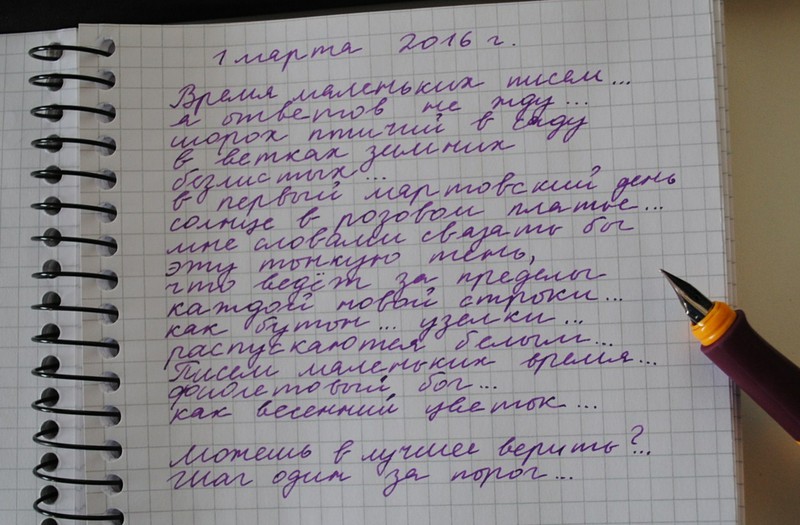 1 марта 2016 г.
Время маленьких писем...
я ответов не жду...
шорох птичий в саду
в ветках зимних
безлистых...
в первый мартовский день
солнце в розовом платье...
мне словами связать бы
эту тонкую тень,
что ведёт за пределы
каждой новой строки...
как бутон... узелки...
распускаются белым...
Писем маленьких время...
фиолетовый бог...
как весенний цветок...
Можешь в лучшее верить?...
Шаг один за порог...